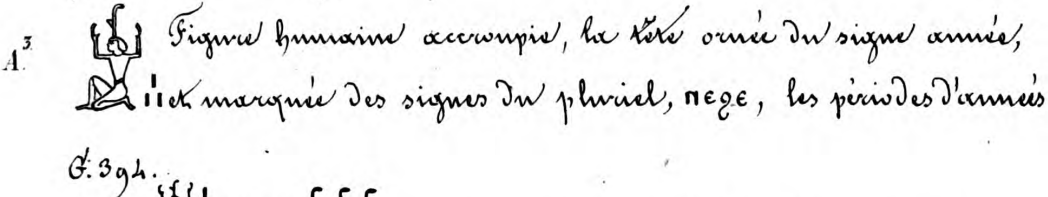 A³. Figure humaine accroupie, la tête ornée du signe année,
et marquée des signes du pluriel, ⲡⲉϩⲉ, les périodes d'années
G. 394.